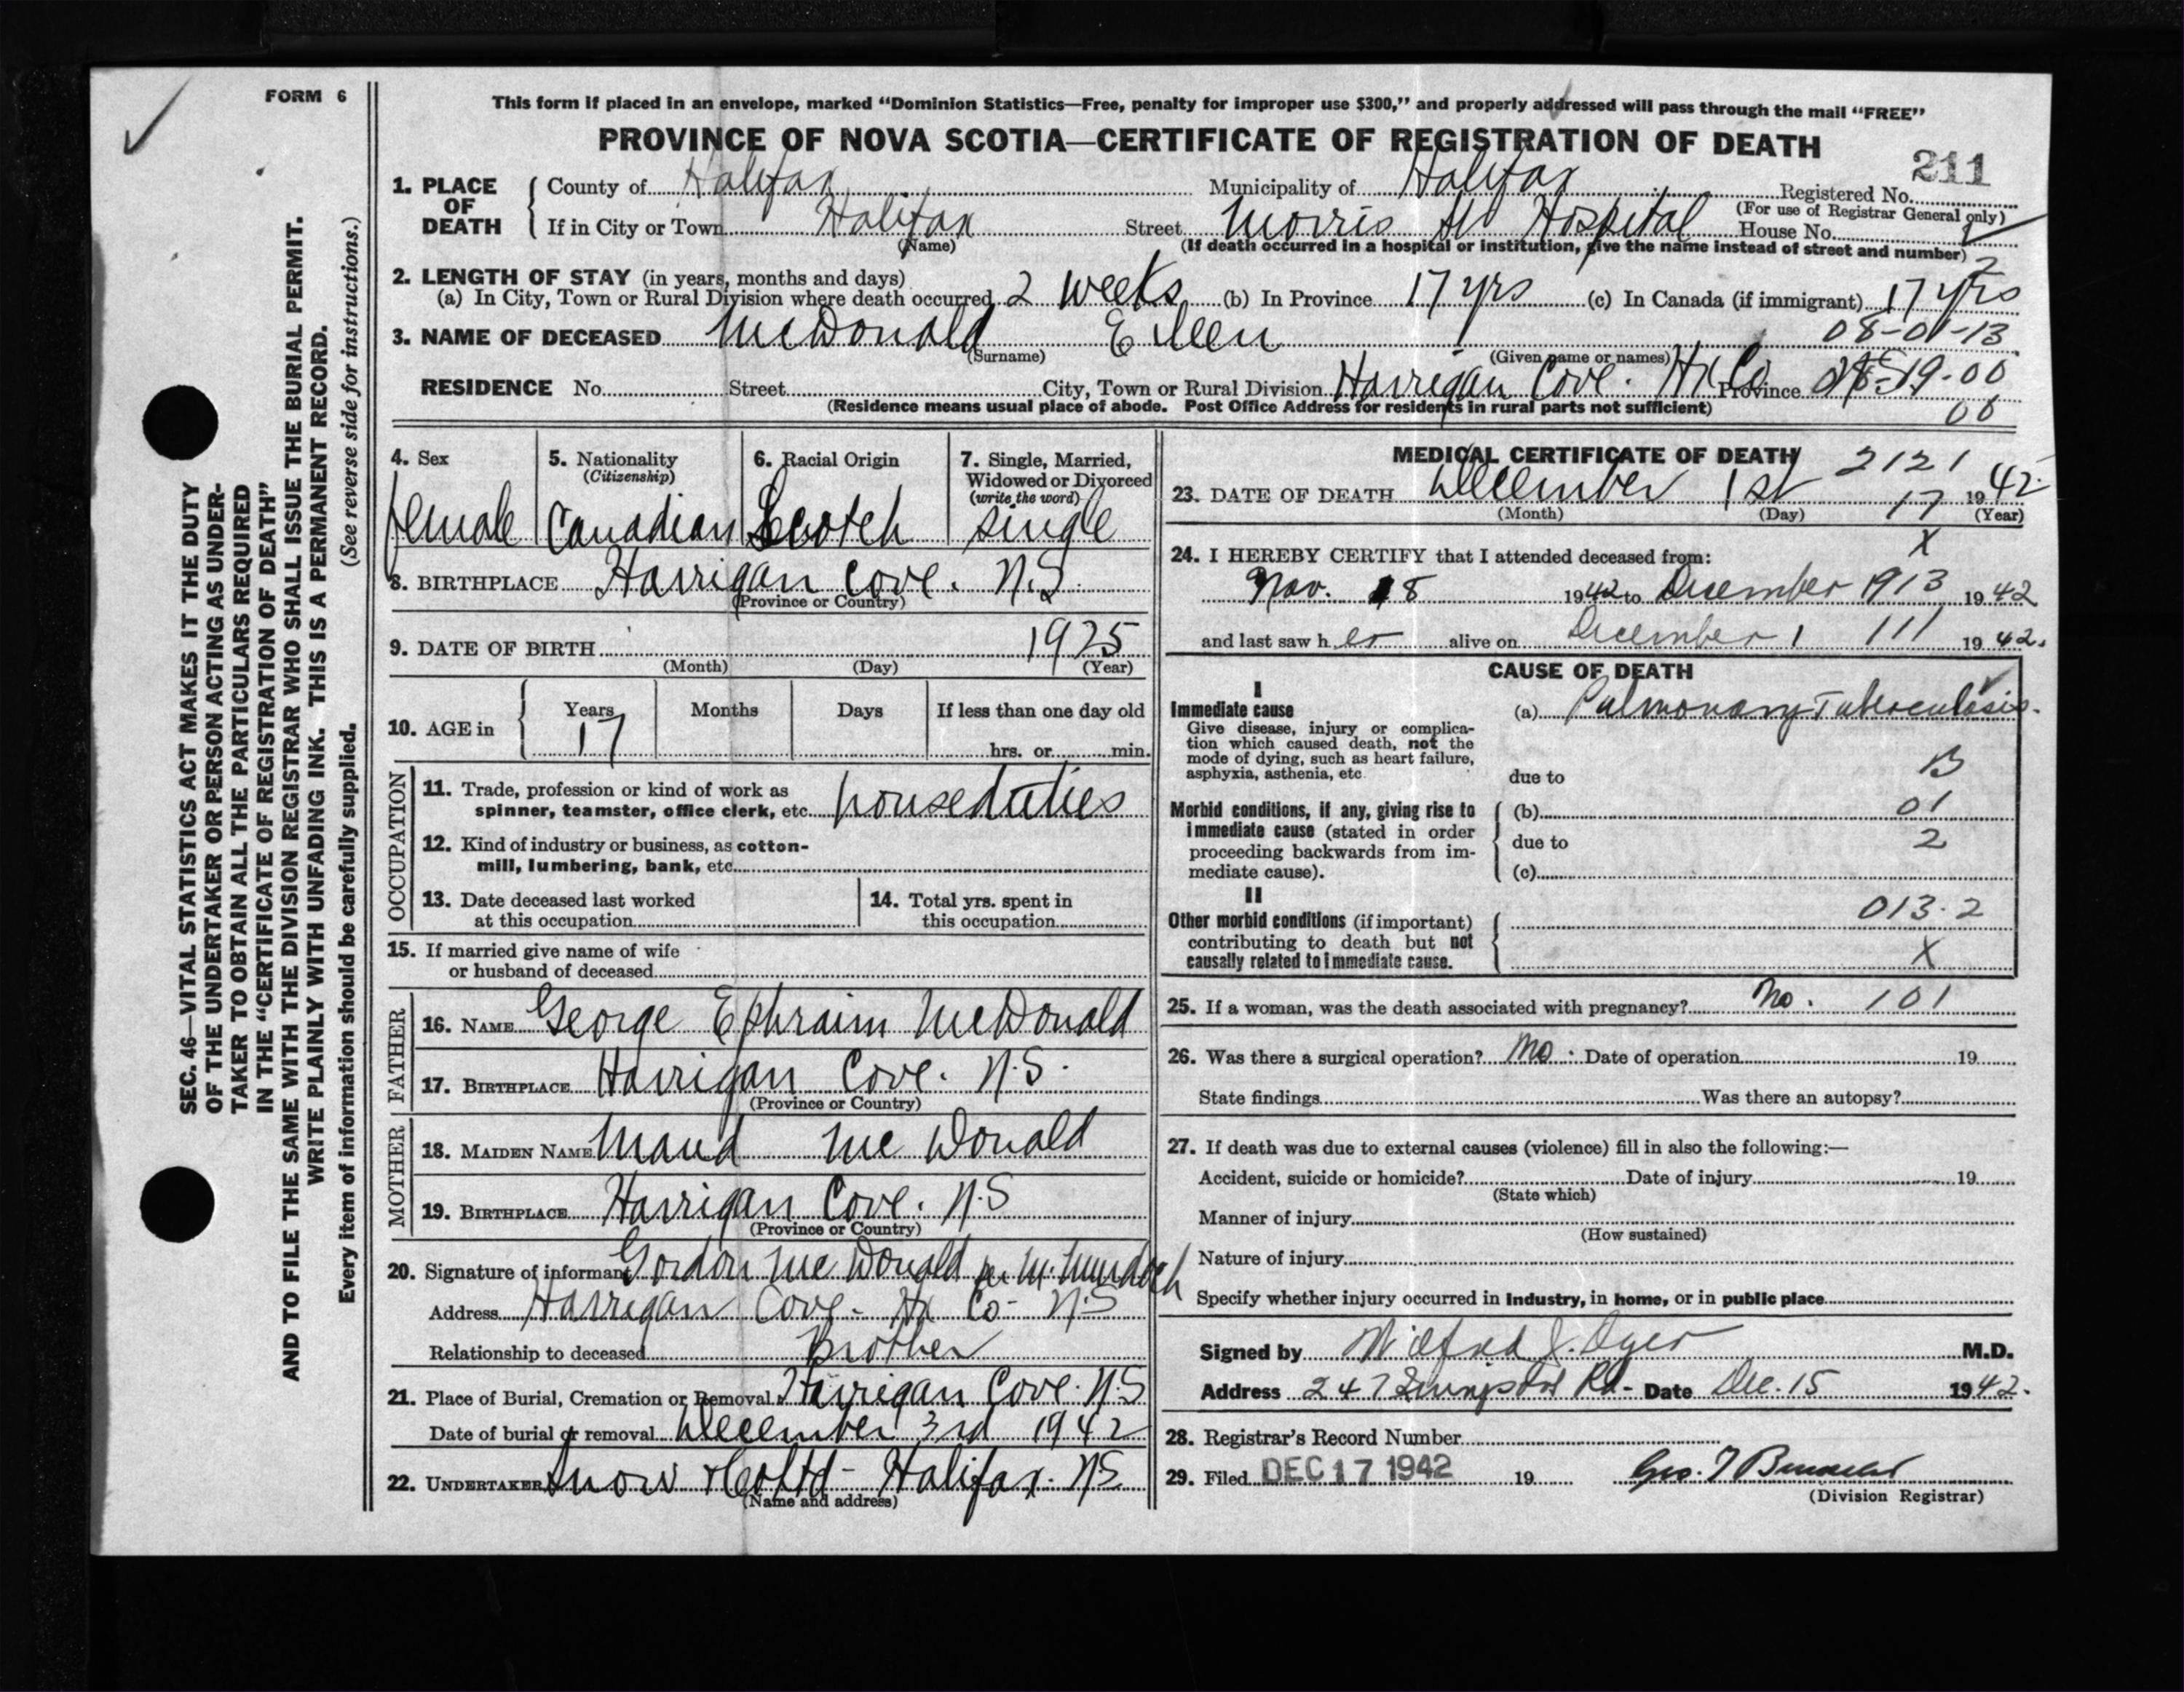 FORM 6
This form if placed in an envelope, marked “Dominion Statistics—Free, penalty for improper use $300,” and properly addressed will pass through the mail “FREE”
PROVINCE OF NOVA SCOTIA—CERTIFICATE OF REGISTRATION OF DEATH
211
1. PLACE OF DEATH County of Halifax Municipality of Halifax Registered No.
(For use of Registrar General only)
If in City or Town Halifax Street Morris St Hospital House No.
(Name) (If death occurred in a hospital or institution, give the name instead of street and number)
2
2. LENGTH OF STAY (in years, months and days)
(a) In City, Town or Rural Division where death occurred 2 weeks (b) In Province 17 yrs (c) In Canada (if immigrant) 17 yrs
08-01-13
3. NAME OF DECEASED McDonald Eileen
(Surname) (Given name or names)
RESIDENCE No. Street City, Town or Rural Division Harrigan Cove. Hx Co Province 19-00
(Residence means usual place of abode. Post Office Address for residents in rural parts not sufficient)
00
4. Sex female
5. Nationality (Citizenship) Canadian
6. Racial Origin Scotch
7. Single, Married, Widowed or Divorced (write the word) single
8. BIRTHPLACE Harrigan Cove. N.S.
(Province or Country)
9. DATE OF BIRTH 1925
(Month) (Day) (Year)
10. AGE in Years 17 Months Days If less than one day old
hrs. or min.
OCCUPATION
11. Trade, profession or kind of work as
spinner, teamster, office clerk, etc. houseduties
12. Kind of industry or business, as cotton-
mill, lumbering, bank, etc.
13. Date deceased last worked
at this occupation
14. Total yrs. spent in
this occupation
15. If married give name of wife
or husband of deceased
FATHER
16. NAME George Ephraim McDonald
17. BIRTHPLACE Harrigan Cove. N.S.
(Province or Country)
MOTHER
18. MAIDEN NAME Maud McDonald
19. BIRTHPLACE Harrigan Cove. N.S
(Province or Country)
20. Signature of informant Gordon McDonald M. Murdoch
Address Harrigan Cove- Hx Co- N.S
Relationship to deceased Brother
21. Place of Burial, Cremation or Removal Harrigan Cove. N.S
Date of burial or removal December 3rd 1942
22. UNDERTAKER Snow & Co Ltd - Halifax. N.S
(Name and address)
MEDICAL CERTIFICATE OF DEATH
2121
23. DATE OF DEATH December 1st 17 1942
(Month) (Day) (Year)
X
24. I HEREBY CERTIFY that I attended deceased from:
Nov. 18 1942 to December 1 913 1942
and last saw her alive on December 1 111 1942.
CAUSE OF DEATH
I
Immediate cause
Give disease, injury or complica-
tion which caused death, not the
mode of dying, such as heart failure,
asphyxia, asthenia, etc
(a) Pulmonary Tuberculosis.
due to B
Morbid conditions, if any, giving rise to
immediate cause (stated in order
proceeding backwards from im-
mediate cause).
(b) 01
due to 2
(c)
II
Other morbid conditions (if important)
contributing to death but not
causally related to immediate cause.
013.2
X
25. If a woman, was the death associated with pregnancy? No. 101
26. Was there a surgical operation? No. Date of operation 19
State findings Was there an autopsy?
27. If death was due to external causes (violence) fill in also the following:—
Accident, suicide or homicide? Date of injury 19
(State which)
Manner of injury
(How sustained)
Nature of injury
Specify whether injury occurred in Industry, in home, or in public place
Signed by Wilfred J. Dyer M.D.
Address 247 Rd- Date Dec. 15 1942.
28. Registrar's Record Number
29. Filed DEC 17 1942 19 Geo. T
(Division Registrar)
SEC. 46—VITAL STATISTICS ACT MAKES IT THE DUTY
OF THE UNDERTAKER OR PERSON ACTING AS UNDER-
TAKER TO OBTAIN ALL THE PARTICULARS REQUIRED
IN THE “CERTIFICATE OF REGISTRATION OF DEATH”
AND TO FILE THE SAME WITH THE DIVISION REGISTRAR WHO SHALL ISSUE THE BURIAL PERMIT.
WRITE PLAINLY WITH UNFADING INK. THIS IS A PERMANENT RECORD.
Every item of information should be carefully supplied. (See reverse side for instructions.)